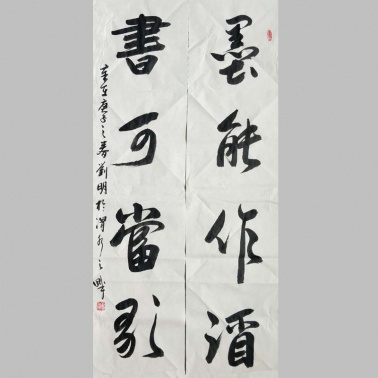 墨能作酒
書可當歌
歲在庚子之春劉明於渭水之畔